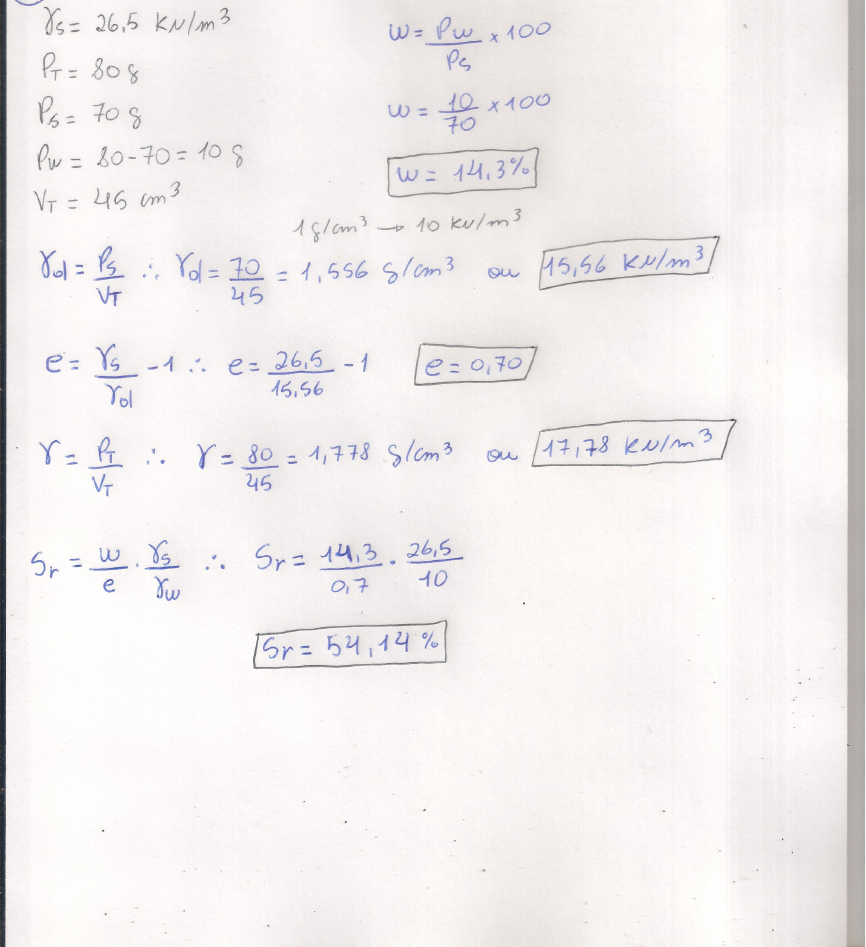 γs = 26,5 KN/m³
PT = 80 g
Ps = 70 g
Pw = 80-70 = 10 g
VT = 45 cm³
w = Pw/Ps × 100
w = 10/70 × 100
w = 14,3%
1 g/cm³ → 10 kN/m³
γd = Ps/VT ∴ γd = 70/45 = 1,556 g/cm³ ou 15,56 KN/m³
e = γs/γd - 1 ∴ e = 26,5/15,56 - 1 e = 0,70
γ = PT/VT ∴ γ = 80/45 = 1,778 g/cm³ ou 17,78 KN/m³
Sr = w/e · γs/γw ∴ Sr = 14,3/0,7 · 26,5/10
Sr = 54,14%